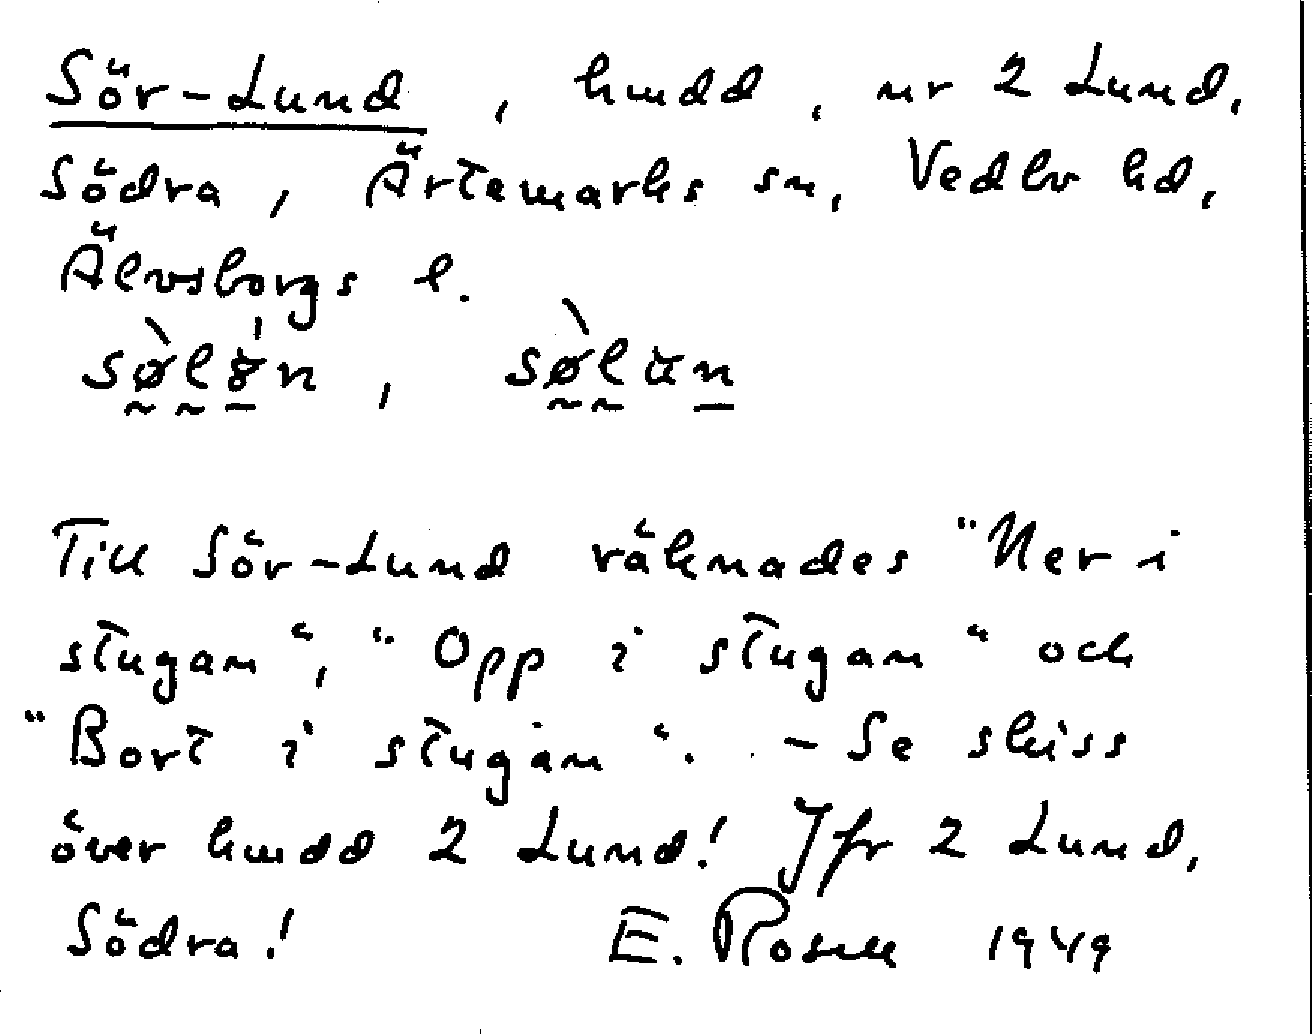 Sör-Lund, hmdd, nr 2 Lund,
Södra, Ärtemarks sn, Vedbo hd,
Älvsborgs l.
Till Sör-Lund räknades "Ner i
stugan", "Opp i stugan" och
"Bort i stugan". - Se skiss
över hmdd 2 Lund! Jfr 2 Lund,
Södra! E. Rosell 1949